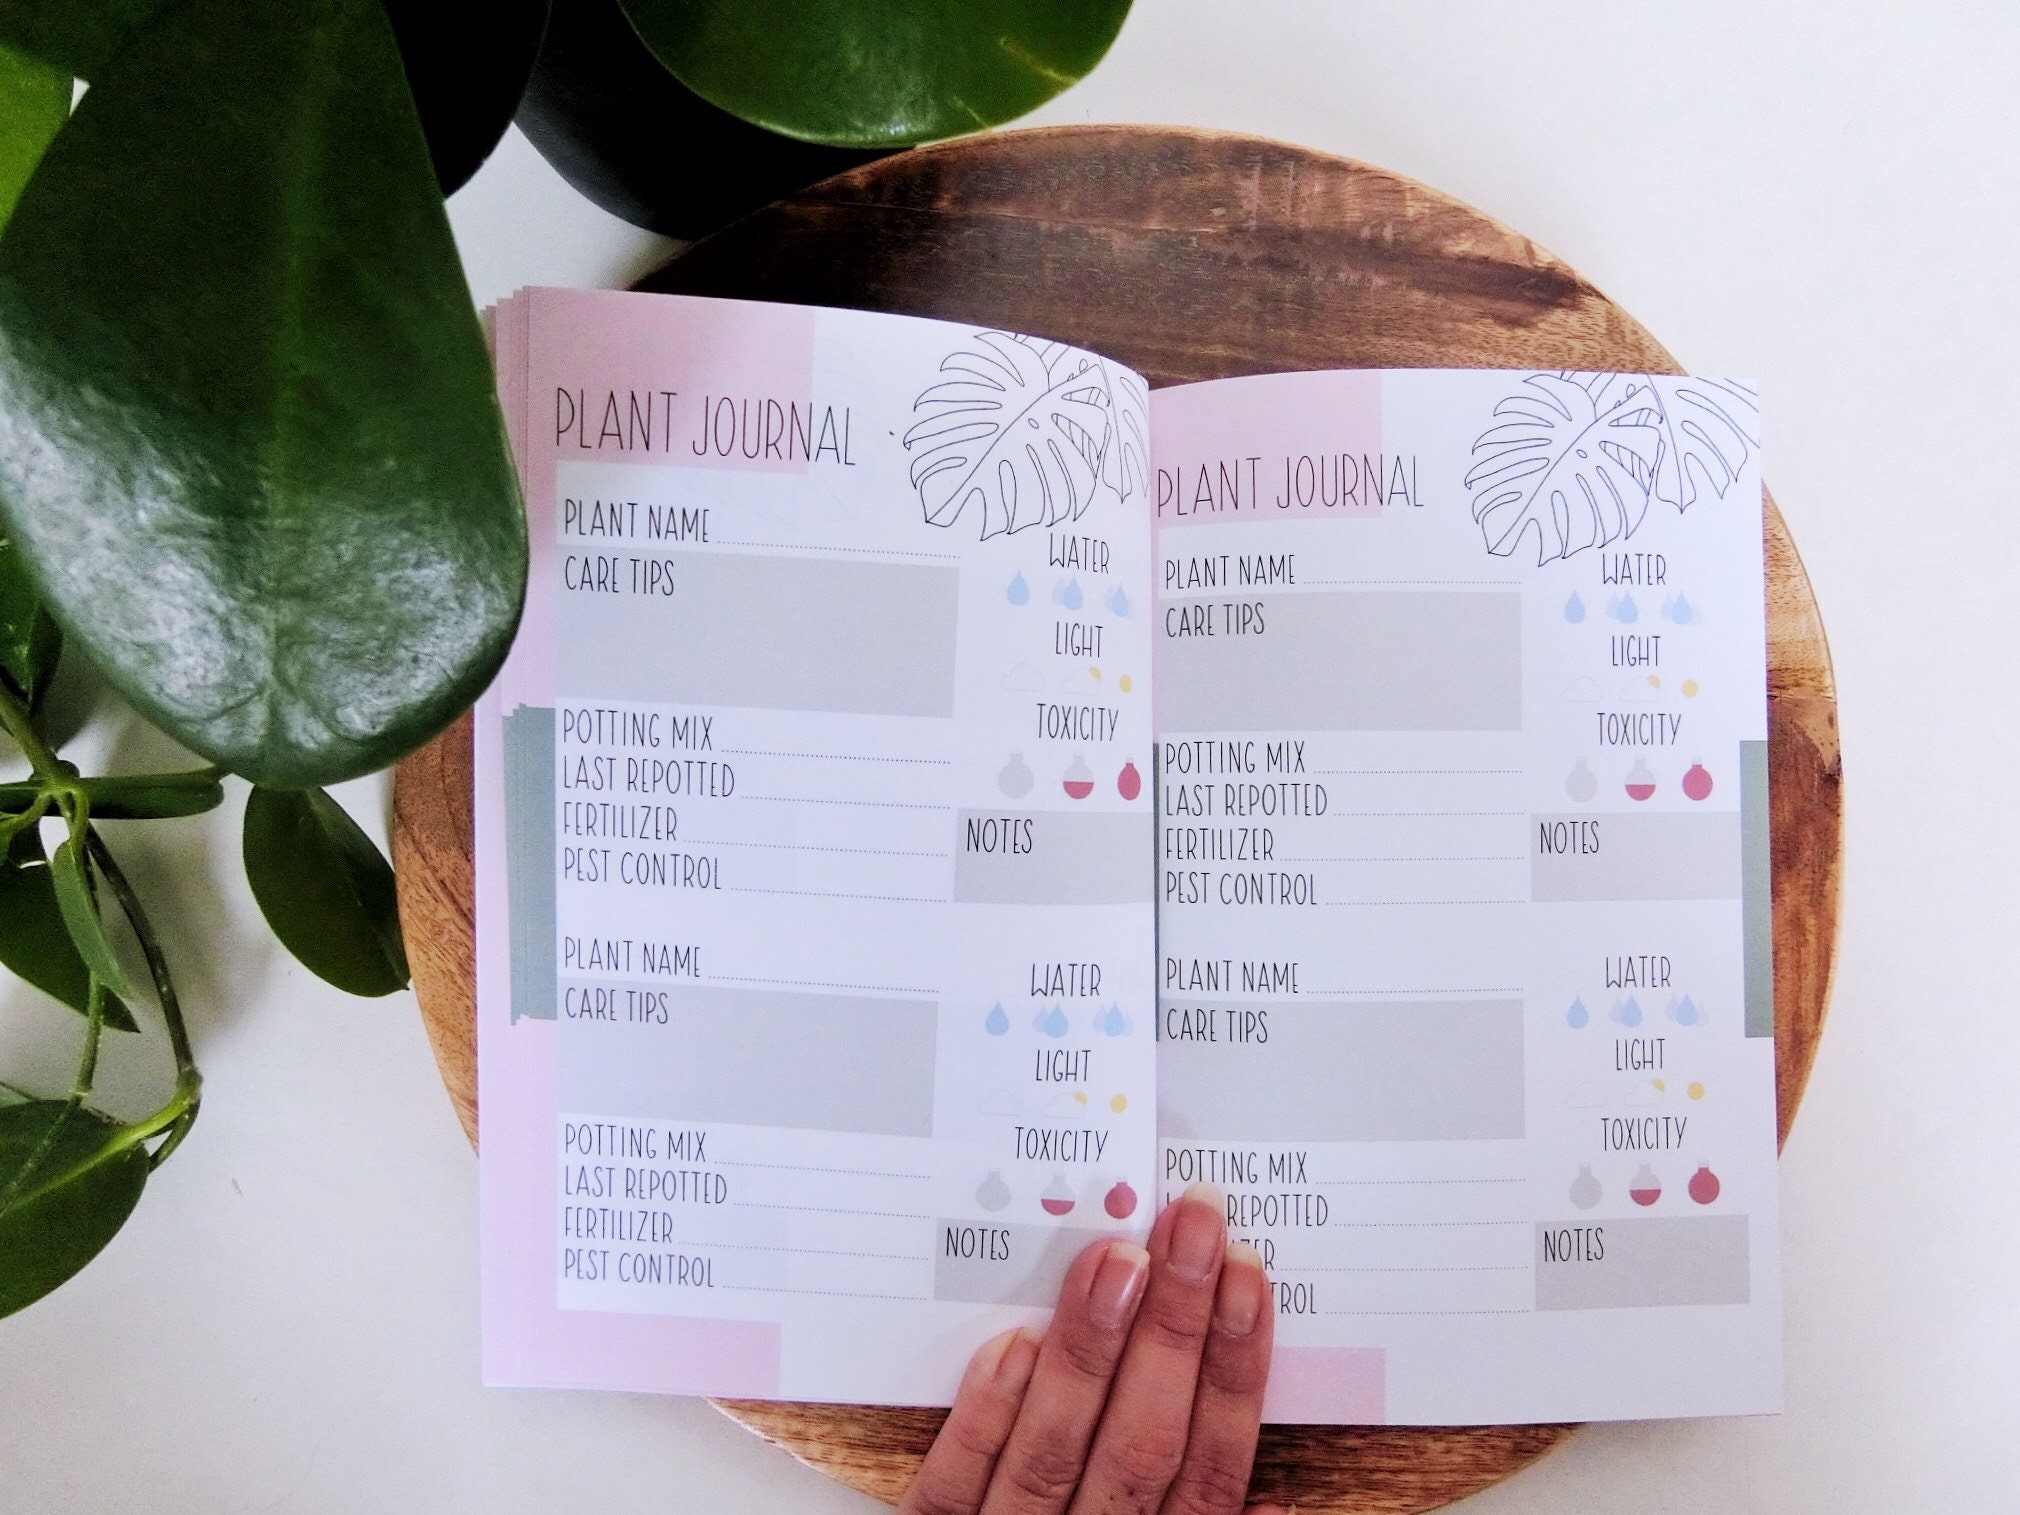 PLANT JOURNAL
PLANT NAME
CARE TIPS
WATER
LIGHT
TOXICITY
POTTING MIX
LAST REPOTTED
FERTILIZER
PEST CONTROL
NOTES
PLANT NAME
CARE TIPS
WATER
LIGHT
TOXICITY
POTTING MIX
LAST REPOTTED
FERTILIZER
PEST CONTROL
NOTES
PLANT JOURNAL
PLANT NAME
CARE TIPS
WATER
LIGHT
TOXICITY
POTTING MIX
LAST REPOTTED
FERTILIZER
PEST CONTROL
NOTES
PLANT NAME
CARE TIPS
WATER
LIGHT
TOXICITY
POTTING MIX
REPOTTED
NOTES